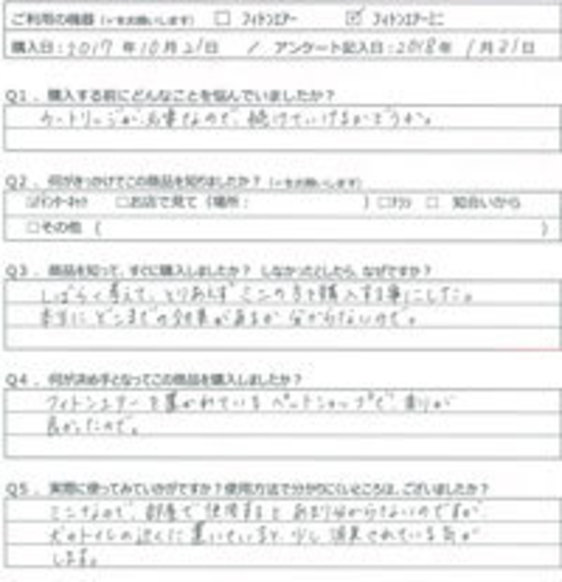 ご利用の機器（✓をお願いします） □ フィトンエアー ☑ フィトンエアーミニ
購入日：2017 年 10 月 21 日 / アンケート記入日：2018 年 1 月 21 日
Q1．購入する前にどんなことを悩んでいましたか？
カートリッジが必要なので、続けていけるかどうか。
Q2．何がきっかけでこの商品を知りましたか？（✓をお願いします）
☑インターネット □お店で見て（場所： ） □チラシ □ 知合いから
□その他（ ）
Q3．商品を知って、すぐに購入しましたか？ しなかったとしたら、なぜですか？
しばらく考えて、とりあえず ミニの方を購入する事にした。
本当にどこまでの効果があるか 分からないので。
Q4．何が決め手となってこの商品を購入しましたか？
フィトンエアーを置かれている ペットショップで、香りが
良かったので。
Q5．実際に使ってみていかがですか？使用方法で分かりにくいところは、ございましたか？
ミニなので、部屋で使用すると あまり分からないのですが、
犬のトイレの近くに置いていると、少し 消臭されている気が
します。